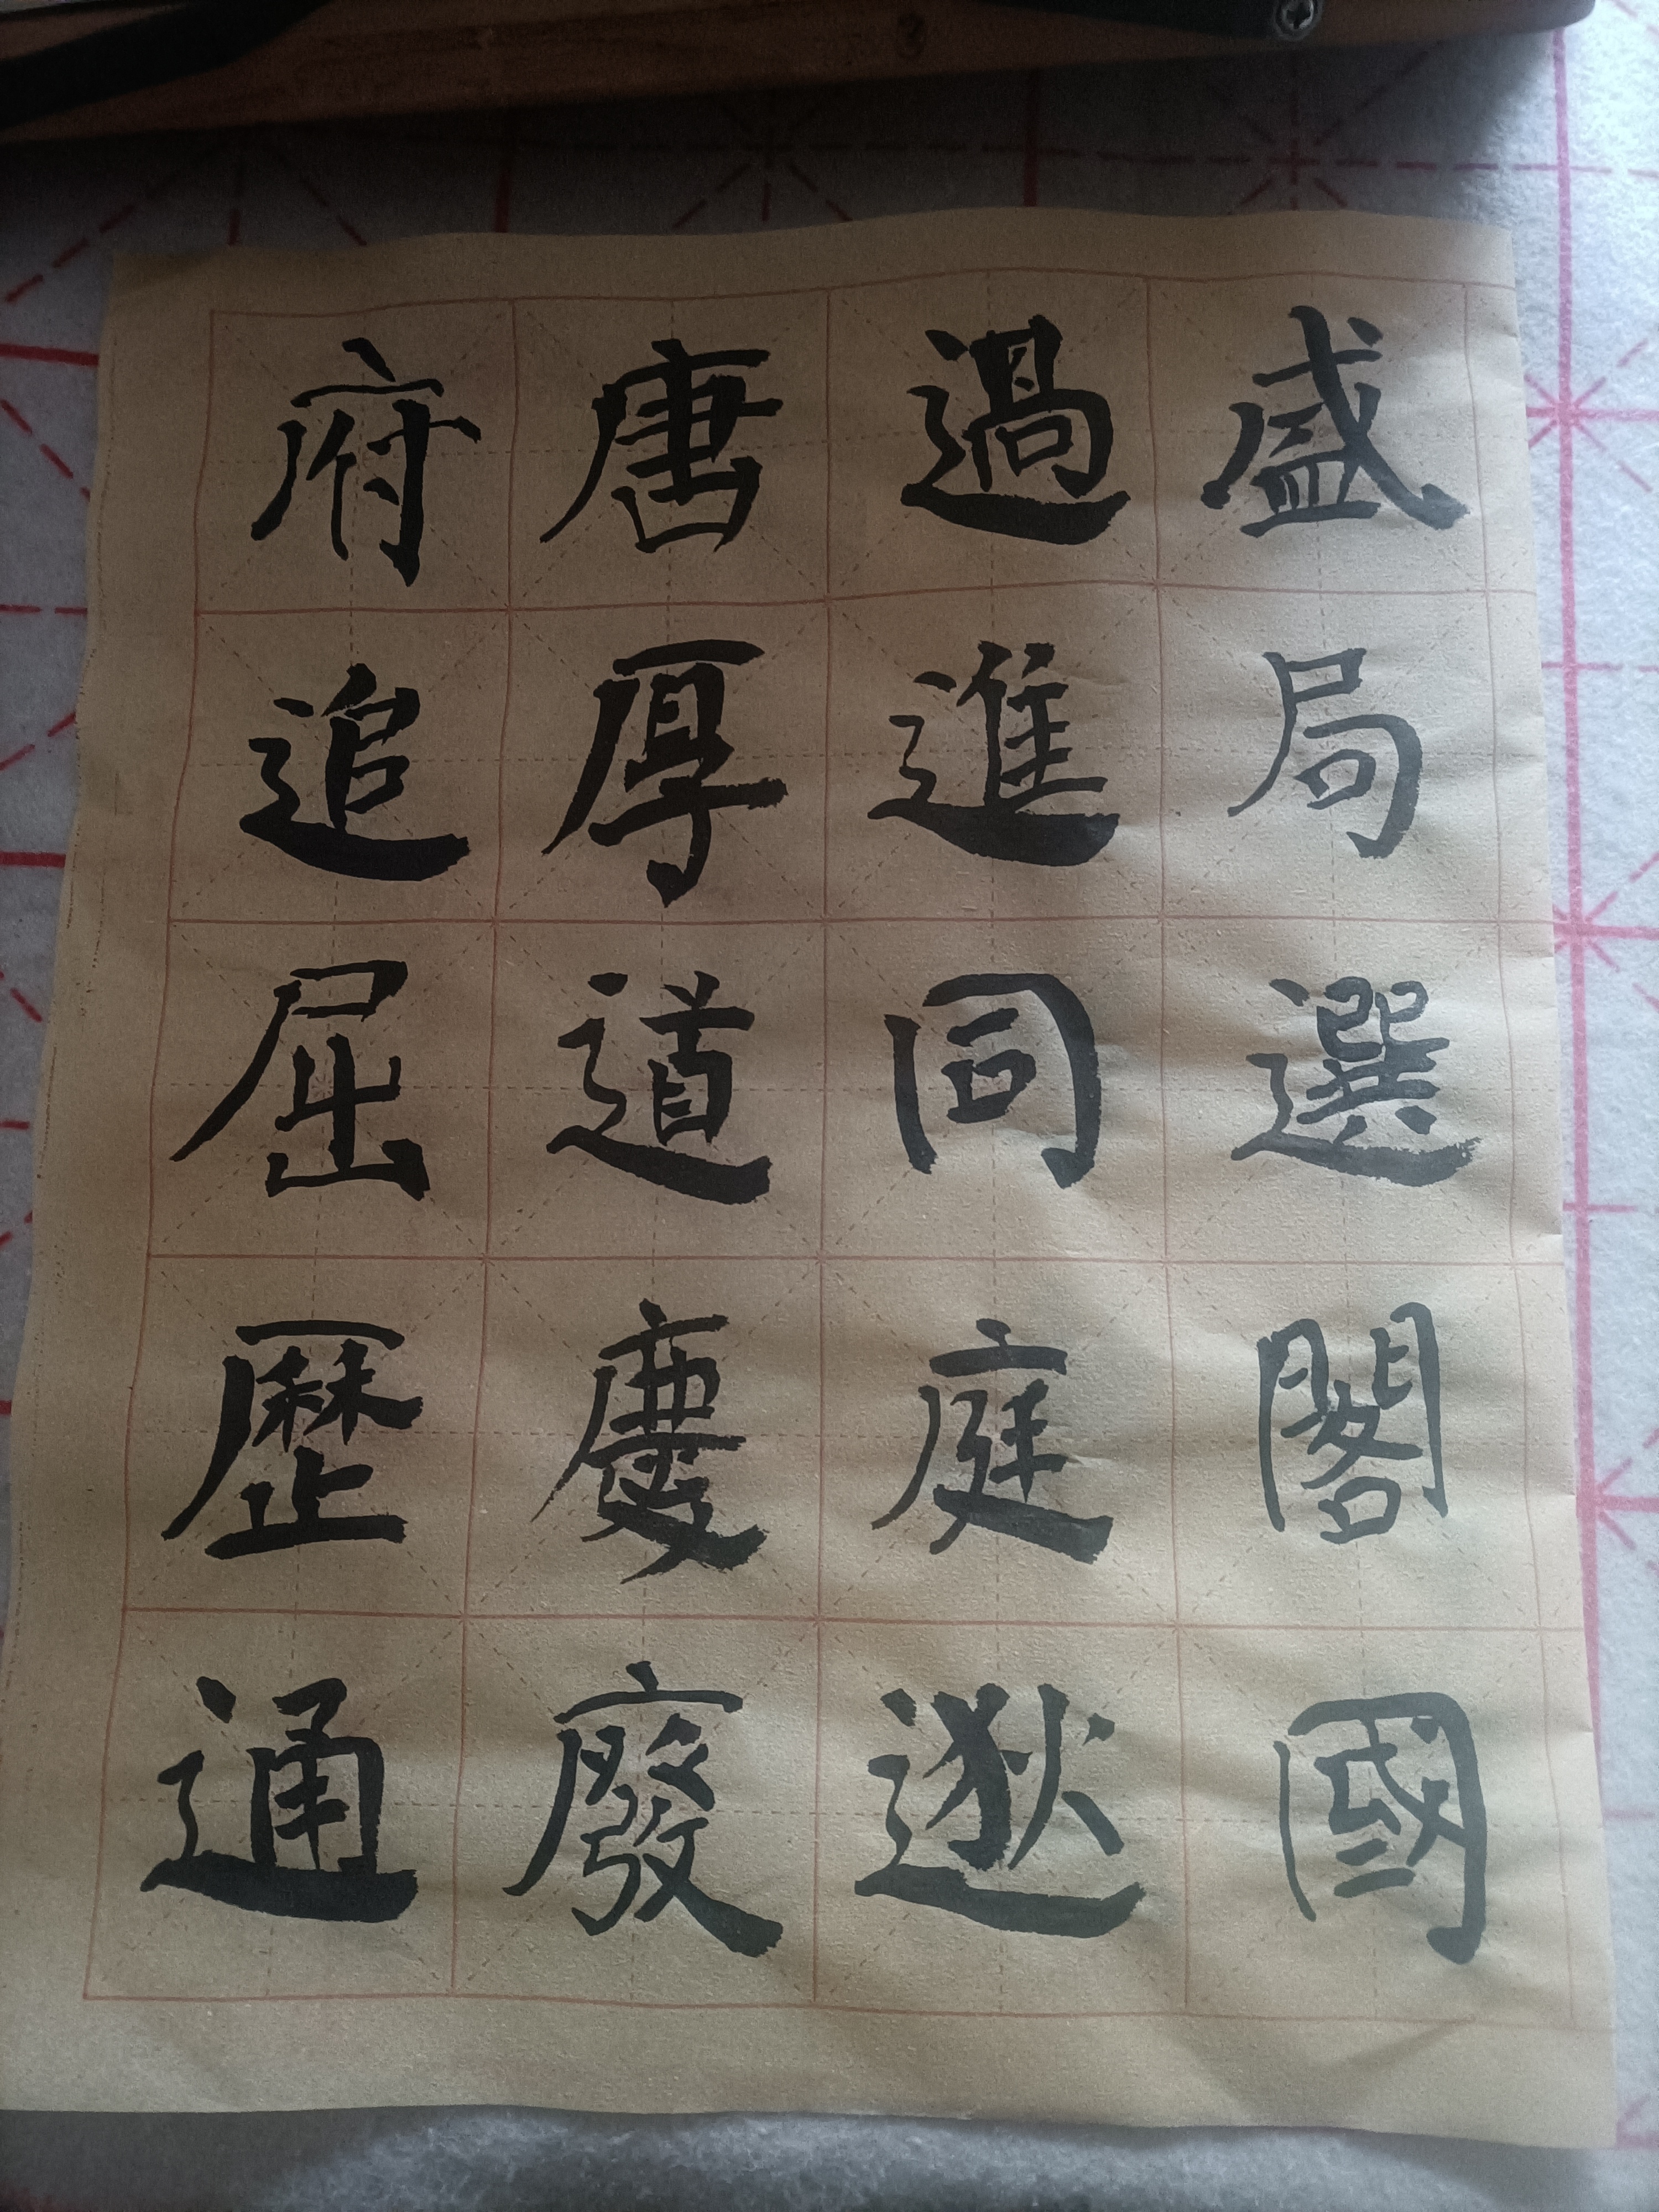 盛局選閣國
過進同庭逖
唐厚道慶廢
府追屈歷通